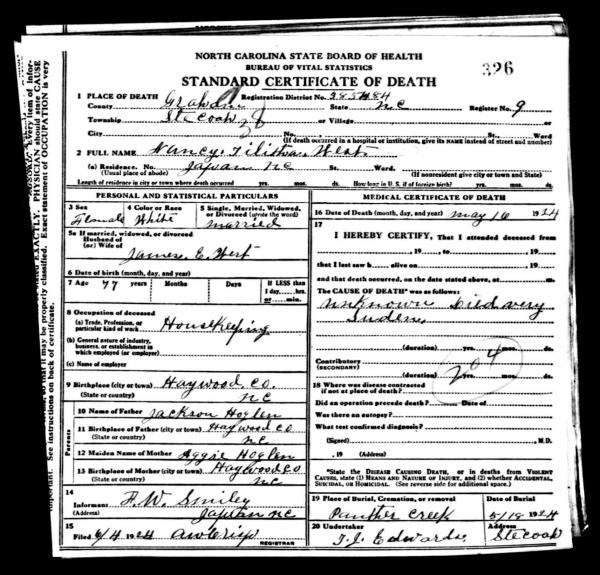 NORTH CAROLINA STATE BOARD OF HEALTH
BUREAU OF VITAL STATISTICS
326
STANDARD CERTIFICATE OF DEATH
1 PLACE OF DEATH Registration District No. 385484
County Graham State NC Register No. 9
Township Stecoah or Village
City No. St. Ward
(If death occurred in a hospital or institution, give its NAME instead of street and number)
2 FULL NAME Nancy West
(a) Residence. No. Japan NC St. Ward.
(Usual place of abode) (If nonresident give city or town and State)
Length of residence in city or town where death occurred yrs. mos. ds. How long in U. S., if of foreign birth? yrs. mos. ds.
PERSONAL AND STATISTICAL PARTICULARS
3 Sex 4 Color or Race 5 Single, Married, Widowed, or Divorced (write the word)
Female White Married
5a If married, widowed, or divorced
Husband of
(or) Wife of
James E. West
6 Date of birth (month, day, and year)
7 Age 77 years Months Days If LESS than
1 day, hrs.
or min.
8 Occupation of deceased
(a) Trade, Profession, or particular kind of work Housekeeping
(b) General nature of industry,
business, or establishment in
which employed (or employer)
(c) Name of employer
9 Birthplace (city or town) Haywood Co.
(State or country) NC
Parents
10 Name of Father Jackson Hoglen
11 Birthplace of Father (city or town) Haywood Co
(State or country) NC
12 Maiden Name of Mother Aggie Hoglen
13 Birthplace of Mother (city or town) Haywood Co
(State or country) NC
14
Informant F. W. Smiley
(Address) Japan NC
15
Filed 6/4 1924
REGISTRAR
MEDICAL CERTIFICATE OF DEATH
16 Date of Death (month, day, and year) May 16 1924
17
I HEREBY CERTIFY, That I attended deceased from
19 to 19
that I last saw h alive on 19
and that death occurred, on the date stated above, at m.
The CAUSE OF DEATH* was as follows:
Unknown Died very
Suden
(duration) yrs. mos. ds.
Contributory
(SECONDARY)
204
(duration) yrs. mos. ds.
18 Where was disease contracted
if not at place of death?
Did an operation precede death? Date of
Was there an autopsy?
What test confirmed diagnosis?
(Signed) M.D.
, 19 (Address)
*State the DISEASE CAUSING DEATH, or in deaths from VIOLENT
CAUSES, state (1) MEANS AND NATURE OF INJURY, and (2) whether ACCIDENTAL,
SUICIDAL, or HOMICIDAL. (See reverse side for additional space.)
19 Place of Burial, Cremation, or removal Date of Burial
Panther Creek 5/18 1924
20 Undertaker Address
T. J. Edwards Stecoah